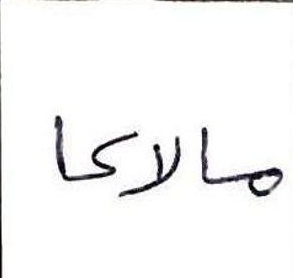 مالاكا